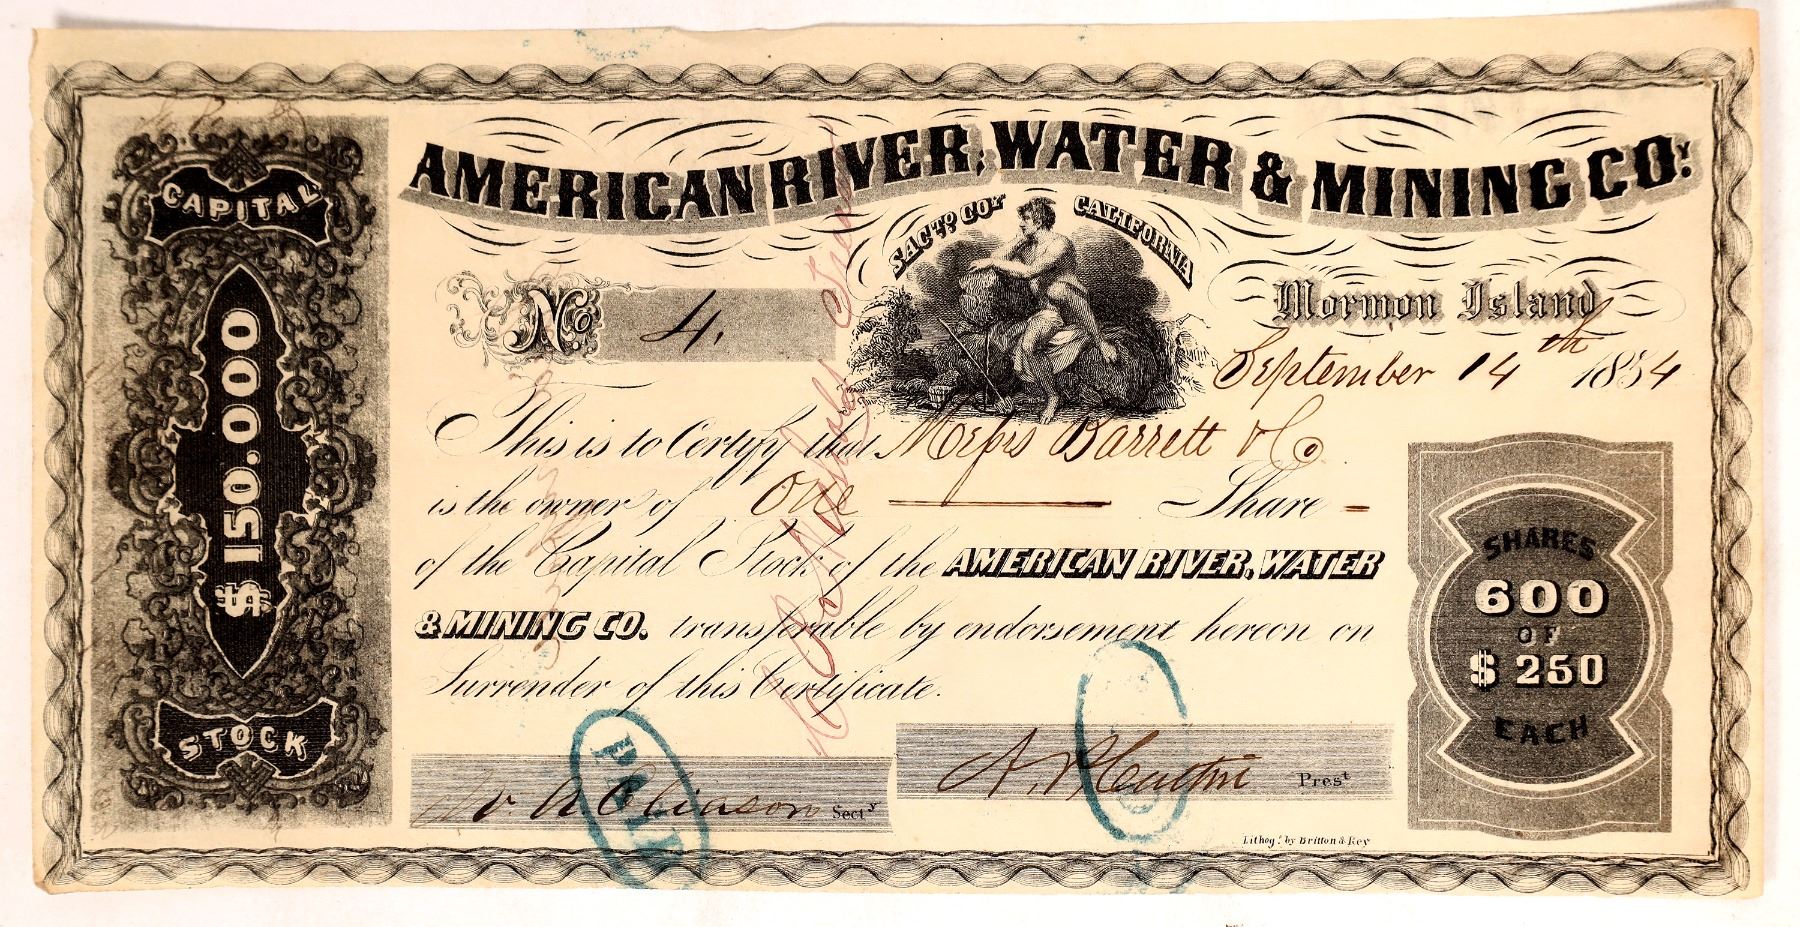 AMERICAN RIVER, WATER & MINING COY.
SACTO. COY CALIFORNIA
CAPITAL
$ 150.000
STOCK
No 4.
Mormon Island
September 14th 1854
This is to Certify that Messrs Barrett & Co
is the owner of One Share
of the Capital Stock of the AMERICAN RIVER, WATER
& MINING CO. transferable by endorsement hereon on
Surrender of this Certificate.
SHARES
600
OF
$ 250
EACH
Secty
Prest
PAID
Lithogd. by Britton & Rey